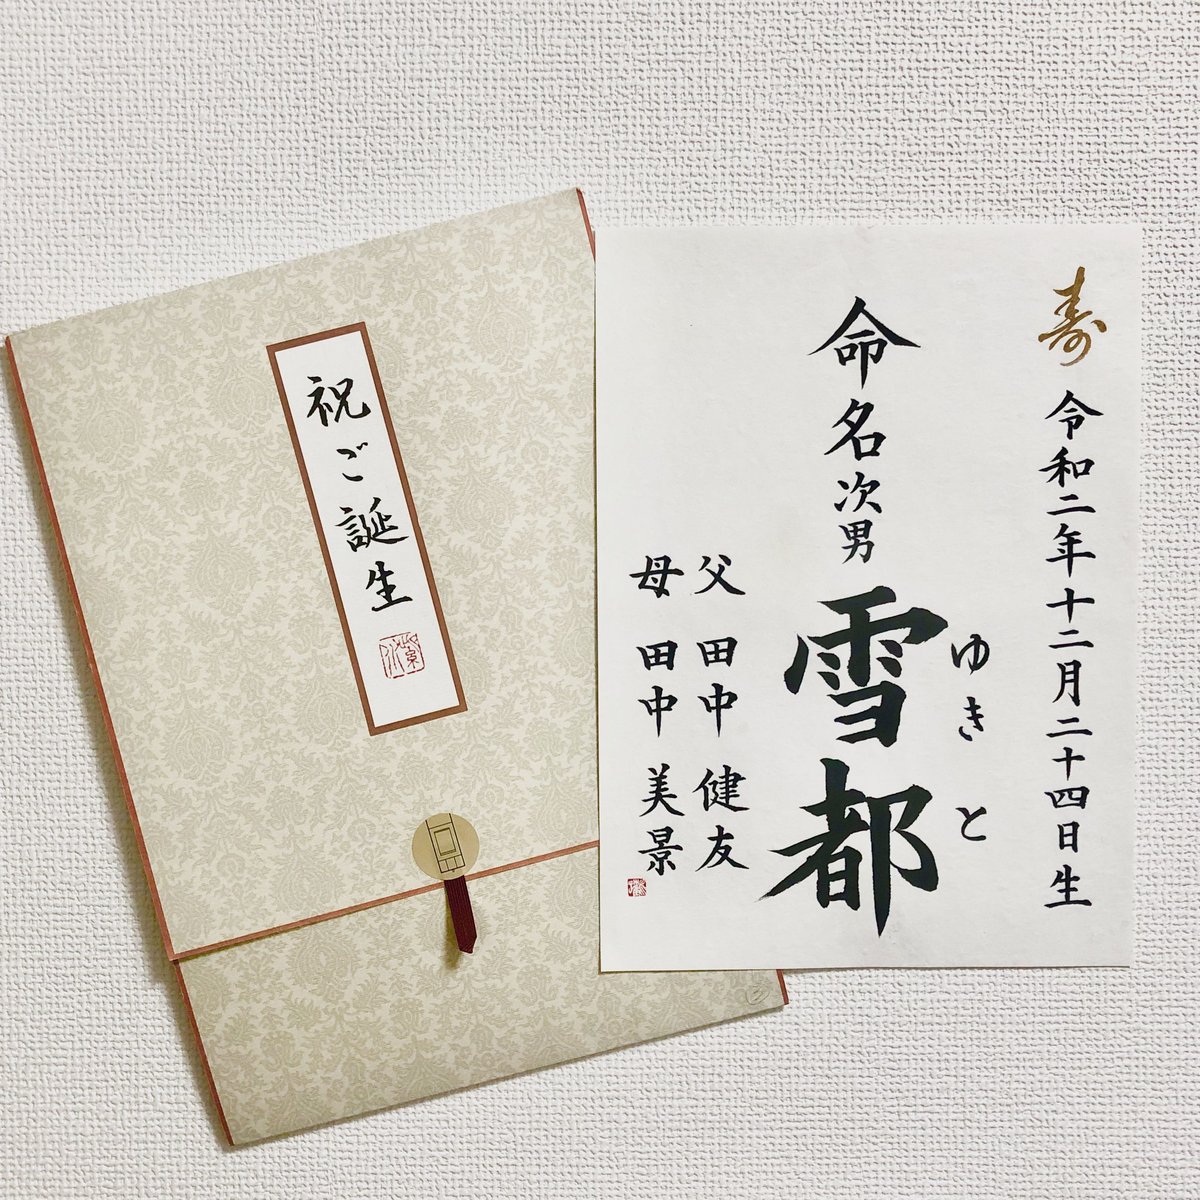 寿 令和二年十二月二十四日生
命名 次男 雪都
ゆきと
父 田中 健友
母 田中 美景
祝ご誕生